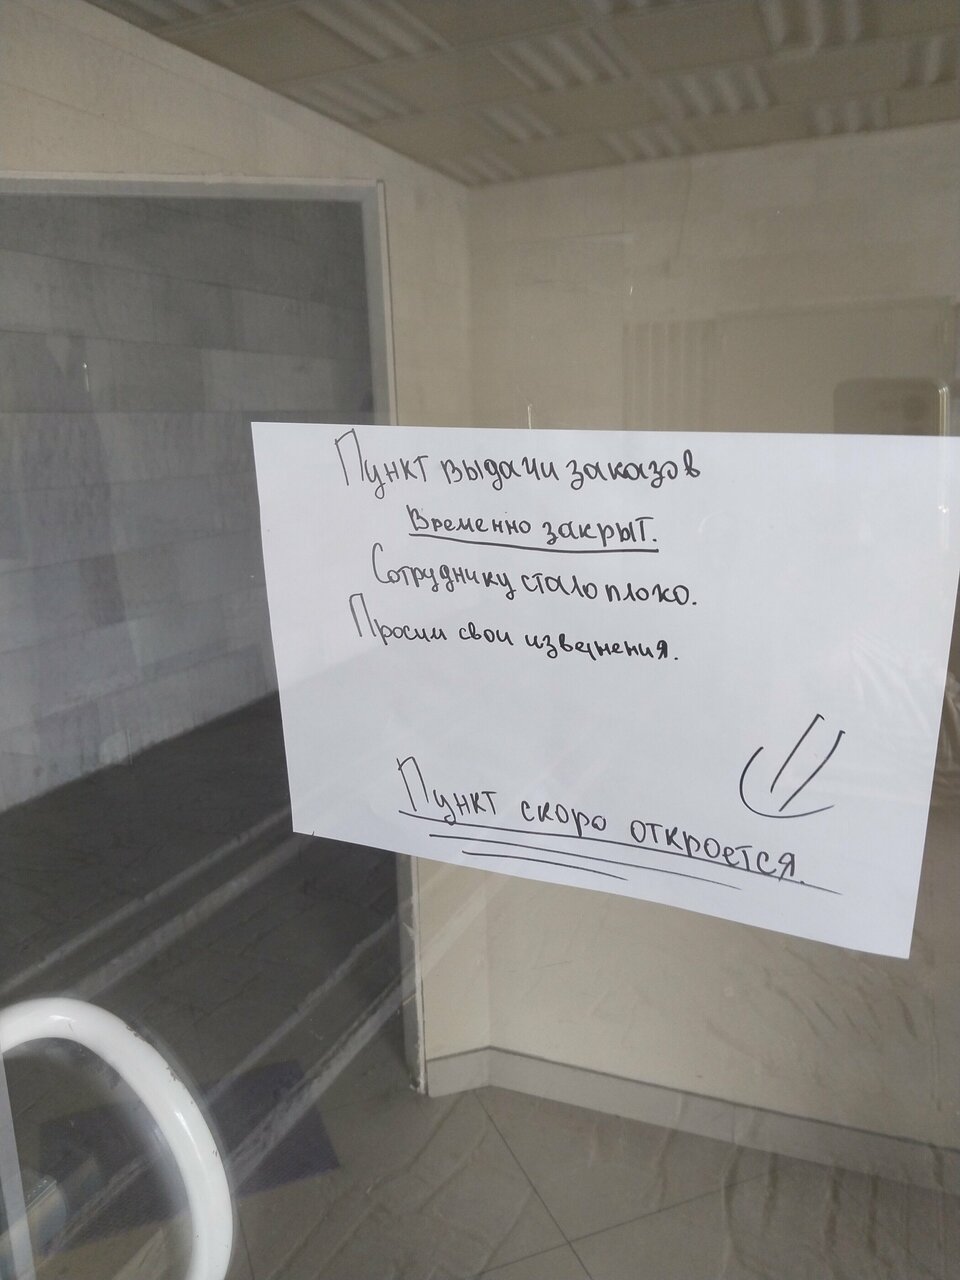 Пункт выдачи заказов
Временно закрыт.
Сотруднику стало плохо.
Просим свои извенения.
Пункт скоро откроется.